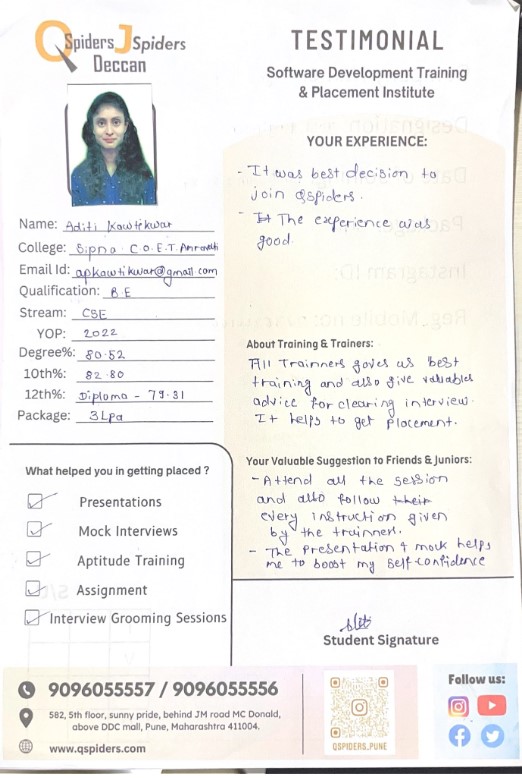 QSpiders JSpiders
Deccan
TESTIMONIAL
Software Development Training
& Placement Institute
Name: Aditi Kawtikwar
College: Sipna C.O.E.T. Amravati
Email Id: apkawtikwar@gmail.com
Qualification: B.E
Stream: CSE
YOP: 2022
Degree%: 80.52
10th%: 82.80
12th%: Diploma - 79.31
Package: 3Lpa
What helped you in getting placed ?
Presentations
Mock Interviews
Aptitude Training
Assignment
Interview Grooming Sessions
YOUR EXPERIENCE:
- It was best decision to
join Qspiders.
- The experience was
good.
About Training & Trainers:
All Trainners gaves us best
training and also give valuables
advice for clearing interview.
It helps to get placement.
Your Valuable Suggestion to Friends & Juniors:
- Attend all the session
and also follow their
every instruction given
by the trainners.
- The presentation & mock helps
me to boost my self-confidence
Student Signature
9096055557 / 9096055556
582, 5th floor, sunny pride, behind JM road MC Donald,
above DDC mall, Pune, Maharashtra 411004.
www.qspiders.com
QSPIDERS.PUNE
Follow us: